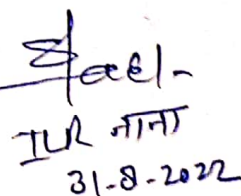 ILR नाना
31-8-2022